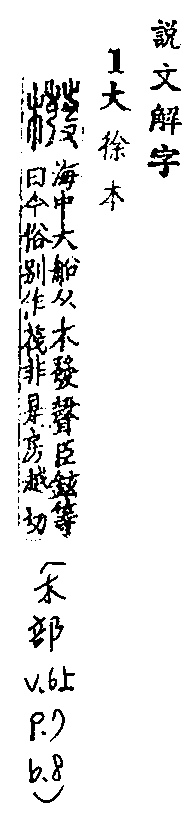 説文解字
1大徐本
橃海中大船从木發聲臣鉉等
曰今俗別作筏非是房越切
(木部
v.6上
p.7
b.8)